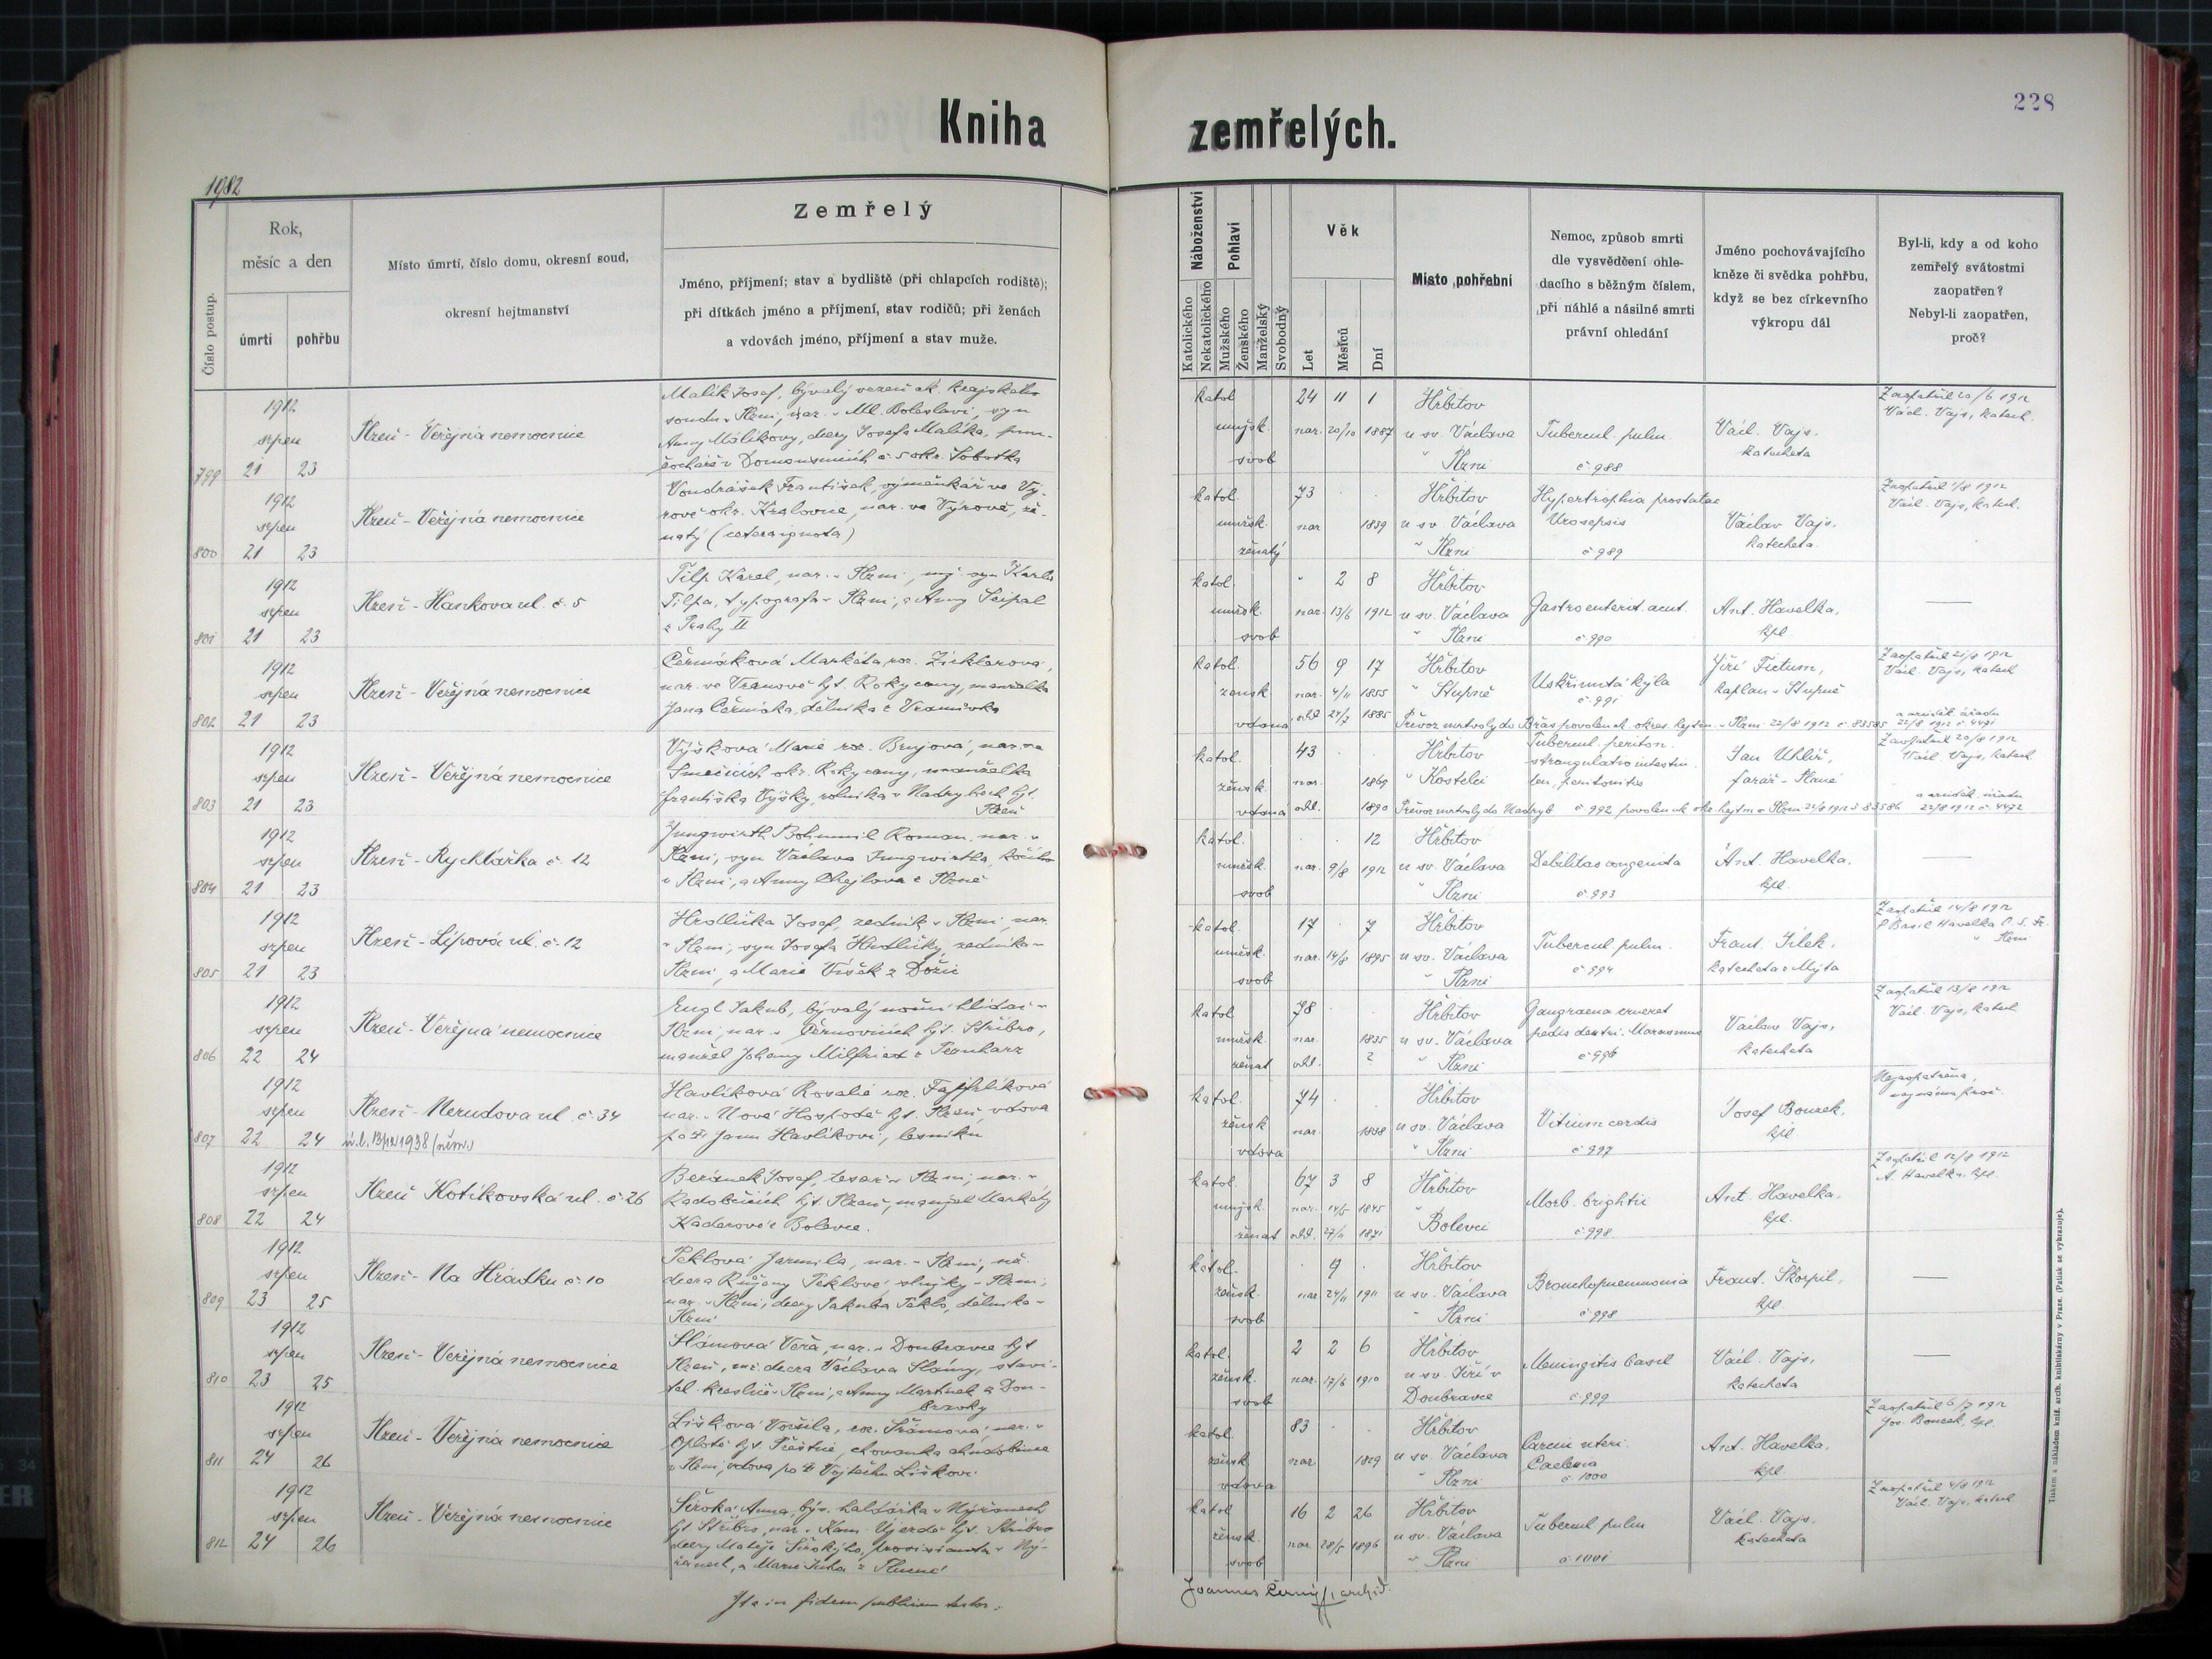 228
Kniha zemřelých.
1982
Číslo postup.
Rok,
měsíc a den
úmrtí
pohřbu
Místo úmrtí, číslo domu, okresní soud,
okresní hejtmanství
Zemřelý
Jméno, příjmení; stav a bydliště (při chlapcích rodiště);
při dítkách jméno a příjmení, stav rodičů; při ženách
a vdovách jméno, příjmení a stav muže.
Náboženství
Katolického
Nekatolického
Pohlaví
Mužského
Ženského
Manželský
Svobodný
Věk
Let
Měsíců
Dní
Místo pohřební
Nemoc, způsob smrti
dle vysvědčení ohle-
dacího s běžným číslem,
při náhlé a násilné smrti
právní ohledání
Jméno pochovávajícího
kněze či svědka pohřbu,
když se bez církevního
výkropu dál
Byl-li, kdy a od koho
zemřelý svátostmi
zaopatřen?
Nebyl-li zaopatřen,
proč?
799
1912
srpen
21 23
Plzeň - Veřejná nemocnice
Malík Josef, bývalý vězeň ck. krajského
soudu v Plzni, nar. v Ml. Boleslavi, syn
Anny Malíkovy, dcery Josefa Malíka,
č. 5 okr. Sobotka
katol. 24 11 1
mužsk. nar. 20/10 1887
svob
Hřbitov
u sv. Václava
v Plzni
Tubercul. pulm.
č. 988
Václ. Vajs,
katecheta
Zaopatřil 20/6 1912
Václ. Vajs, katech.
800
1912
srpen
21 23
Plzeň - Veřejná nemocnice
Vondrášek František, výměnkář ve Vý-
rově okr. Kralovice, nar. ve Výrově, že-
natý (cetera ignota)
katol. 73
mužsk. nar 1839
ženatý
Hřbitov
u sv. Václava
v Plzni
Hypertrophia prostatae
Urosepsis
č. 989
Václav Vajs,
katecheta
Zaopatřil 1/8 1912
Václ. Vajs, katech.
801
1912
srpen
21 23
Plzeň - Hankova ul. č. 5
Tilp Karel, nar. v Plzni, mž. syn Karla
Tilpa, typografa v Plzni, a Anny Seipal
z Prahy II
katol. 2 8
mužsk. nar. 13/6 1912
svob
Hřbitov
u sv. Václava
v Plzni
Gastroenterit. acut.
č. 990
Ant. Havelka,
kpl.
802
1912
srpen
21 23
Plzeň - Veřejná nemocnice
Čermáková Markéta, roz. Zieklerova,
nar. ve Vranově hjt. Rokycany, manželka
Jana Čermáka, dělníka z
katol. 56 9 17
žensk nar. 4/11 1855
vdaná odd. 24/2 1885
Hřbitov
v Stupně
Uskřinutá kýla
č. 991
Jiří Fictum,
kaplan v Stupně
Zaopatřil 21/8 1912
Václ. Vajs, katech
Převoz mrtvoly do Břas povolen ck. okres. hejtm. v Plzni 22/8 1912 č. 83585
22/8 1912 č. 4471
803
1912
srpen
21 23
Plzeň - Veřejná nemocnice
Výšková Marie roz. Brujová, nar. ve
Smečicích okr. Rokycany, manželka
Františka Výšky, rolníka v Nadrybech hjt.
Plzeň
katol. 43
žensk. nar. 1869
vdana odd. 1890
Hřbitov
v Kostelci
Tubercul. periton.
strangulatio intestin.
ten. peritonitis
Jan Uhlíř,
farář - Plané
Zaopatřil 20/8 1912
Václ. Vajs, katech
Převoz mrtvoly do Nadryb č. 992 povolen ck. okr. hejtm v Plzni 22/8 1912 č. 83586
22/8 1912 č. 4472
804
1912
srpen
21 23
Plzeň - Rychtářka č. 12
Jungwirth Bohumil Roman, nar. v
Plzni, syn Václava Jungwirtha, kočího
v Plzni, a Anny Chejlova z Plzně
katol. 12
mužsk. nar. 9/8 1912
svob
Hřbitov
u sv. Václava
v Plzni
Debilitas congenita
č. 993
Ant. Havelka,
kpl.
805
1912
srpen
21 23
Plzeň - Lípová ul. č. 12
Hrdlička Josef, zedník v Plzni, nar.
v Plzni, syn Josefa Hrdličky, zedníka v
Plzni, a Marie Víšek z
katol. 17 7
mužsk. nar. 14/8 1895
svob
Hřbitov
u sv. Václava
v Plzni
Tubercul pulm.
č. 994
Frant. Jílek,
katecheta z Mýta
Zaopatřil 14/8 1912
P. Basil Havelka O. S. Fr.
v Plzni
806
1912
srpen
22 24
Plzeň - Veřejná nemocnice
Engl Jakub, bývalý noční hlídač v
Plzni, nar. v Černovicích hjt. Stříbro,
manžel Johany Milfriedt z
katol. 78
mužsk. nar. 1835
ženat odd. ?
Hřbitov
u sv. Václava
v Plzni
Gangraena
pedis dextri. Marasmus
č. 996
Václav Vajs,
katecheta
Zaopatřil 13/8 1912
Václ. Vajs, katech
807
1912
srpen
22 24
Plzeň - Nerudova ul. č. 34
ú. l. 13/12 1938 (něm.)
Havlíková Rosalie roz.
nar. v Nové Hospodě hjt. Plzeň, vdova
po † Janu Havlíkovi, lesníku
katol. 74
žensk nar. 1838
vdova
Hřbitov
u sv. Václava
v Plzni
Vitium cordis
č. 997
Josef Bouzek,
kpl
Nezaopatřena,
neznámo proč.
808
1912
srpen
22 24
Plzeň Kotíkovská ul. č. 26
Beránek Josef, tesař v Plzni, nar. v
Radobčicích hjt. Plzeň, manžel Markéty
Kaderové z Bolevce.
katol. 67 3 8
mužsk. nar. 14/5 1845
ženat odd. 27/11 1871
Hřbitov
v
Bolevci
Morb. brightii
č. 998
Ant. Havelka,
kpl.
Zaopatřil 12/8 1912
A. Havelka, kpl.
809
1912
srpen
23 25
Plzeň - Na Hrádku č. 10
Teklová Jarmila, nar. v Plzni, ně.
dcera Růženy Teklové, služky v Plzni,
nar. v Plzni, dcery Jakuba Tekla, dělníka v
Plzni
katol. 9
žensk. nar 24/11 1911
svob
Hřbitov
u sv. Václava
v Plzni
Bronchopneumonia
č. 998
Frant. Škorpil,
kpl.
810
1912
srpen
23 25
Plzeň - Veřejná nemocnice
Slámová Věra, nar. v Doubravce hjt
Plzeň, mž. dcera Václava Slámy, stavi-
tel. kresliče v Plzni, a Anny Martínek z Dou-
bravky
katol. 2 2 6
žensk. nar. 17/6 1910
svob
Hřbitov
u sv. Jiří v
Doubravce
Meningitis basil
č. 999
Václ. Vajs,
katecheta
811
1912
srpen
24 26
Plzeň - Veřejná nemocnice
Lišková Voršila, roz. Šrámová, nar. v
Oplotě hjt. Přeštice, chovanka chudobince
v Plzni, vdova po † Vojtěchu Liškovi.
katol. 83
žensk nar 1829
vdova
Hřbitov
u sv. Václava
v Plzni
Carcin uteri.
č. 1000
Ant. Havelka,
kpl.
Zaopatřil 6/7 1912
Jos. Bouzek, kpl.
812
1912
srpen
24 26
Plzeň - Veřejná nemocnice
Široká Anna, býv. v Nýřanech
hjt Stříbro, nar. v Kam. Újezdě hjt. Stříbro
dcery Matěje Širokýho, v Ný-
řanech, a Marie
katol 16 2 26
žensk. nar 28/5 1896
svob
Hřbitov
u sv. Václava
v Plzni
Tubercul pulm
č. 1001
Václ. Vajs,
katecheta
Zaopatřil 4/8 1912
Václ. Vajs, katech
Ita in fidem publicam testor:
Joannes Černý, archid.
Tiskem a nákladem kníž. arcib. knihtiskárny v Praze. (Patisk se vykazuje).